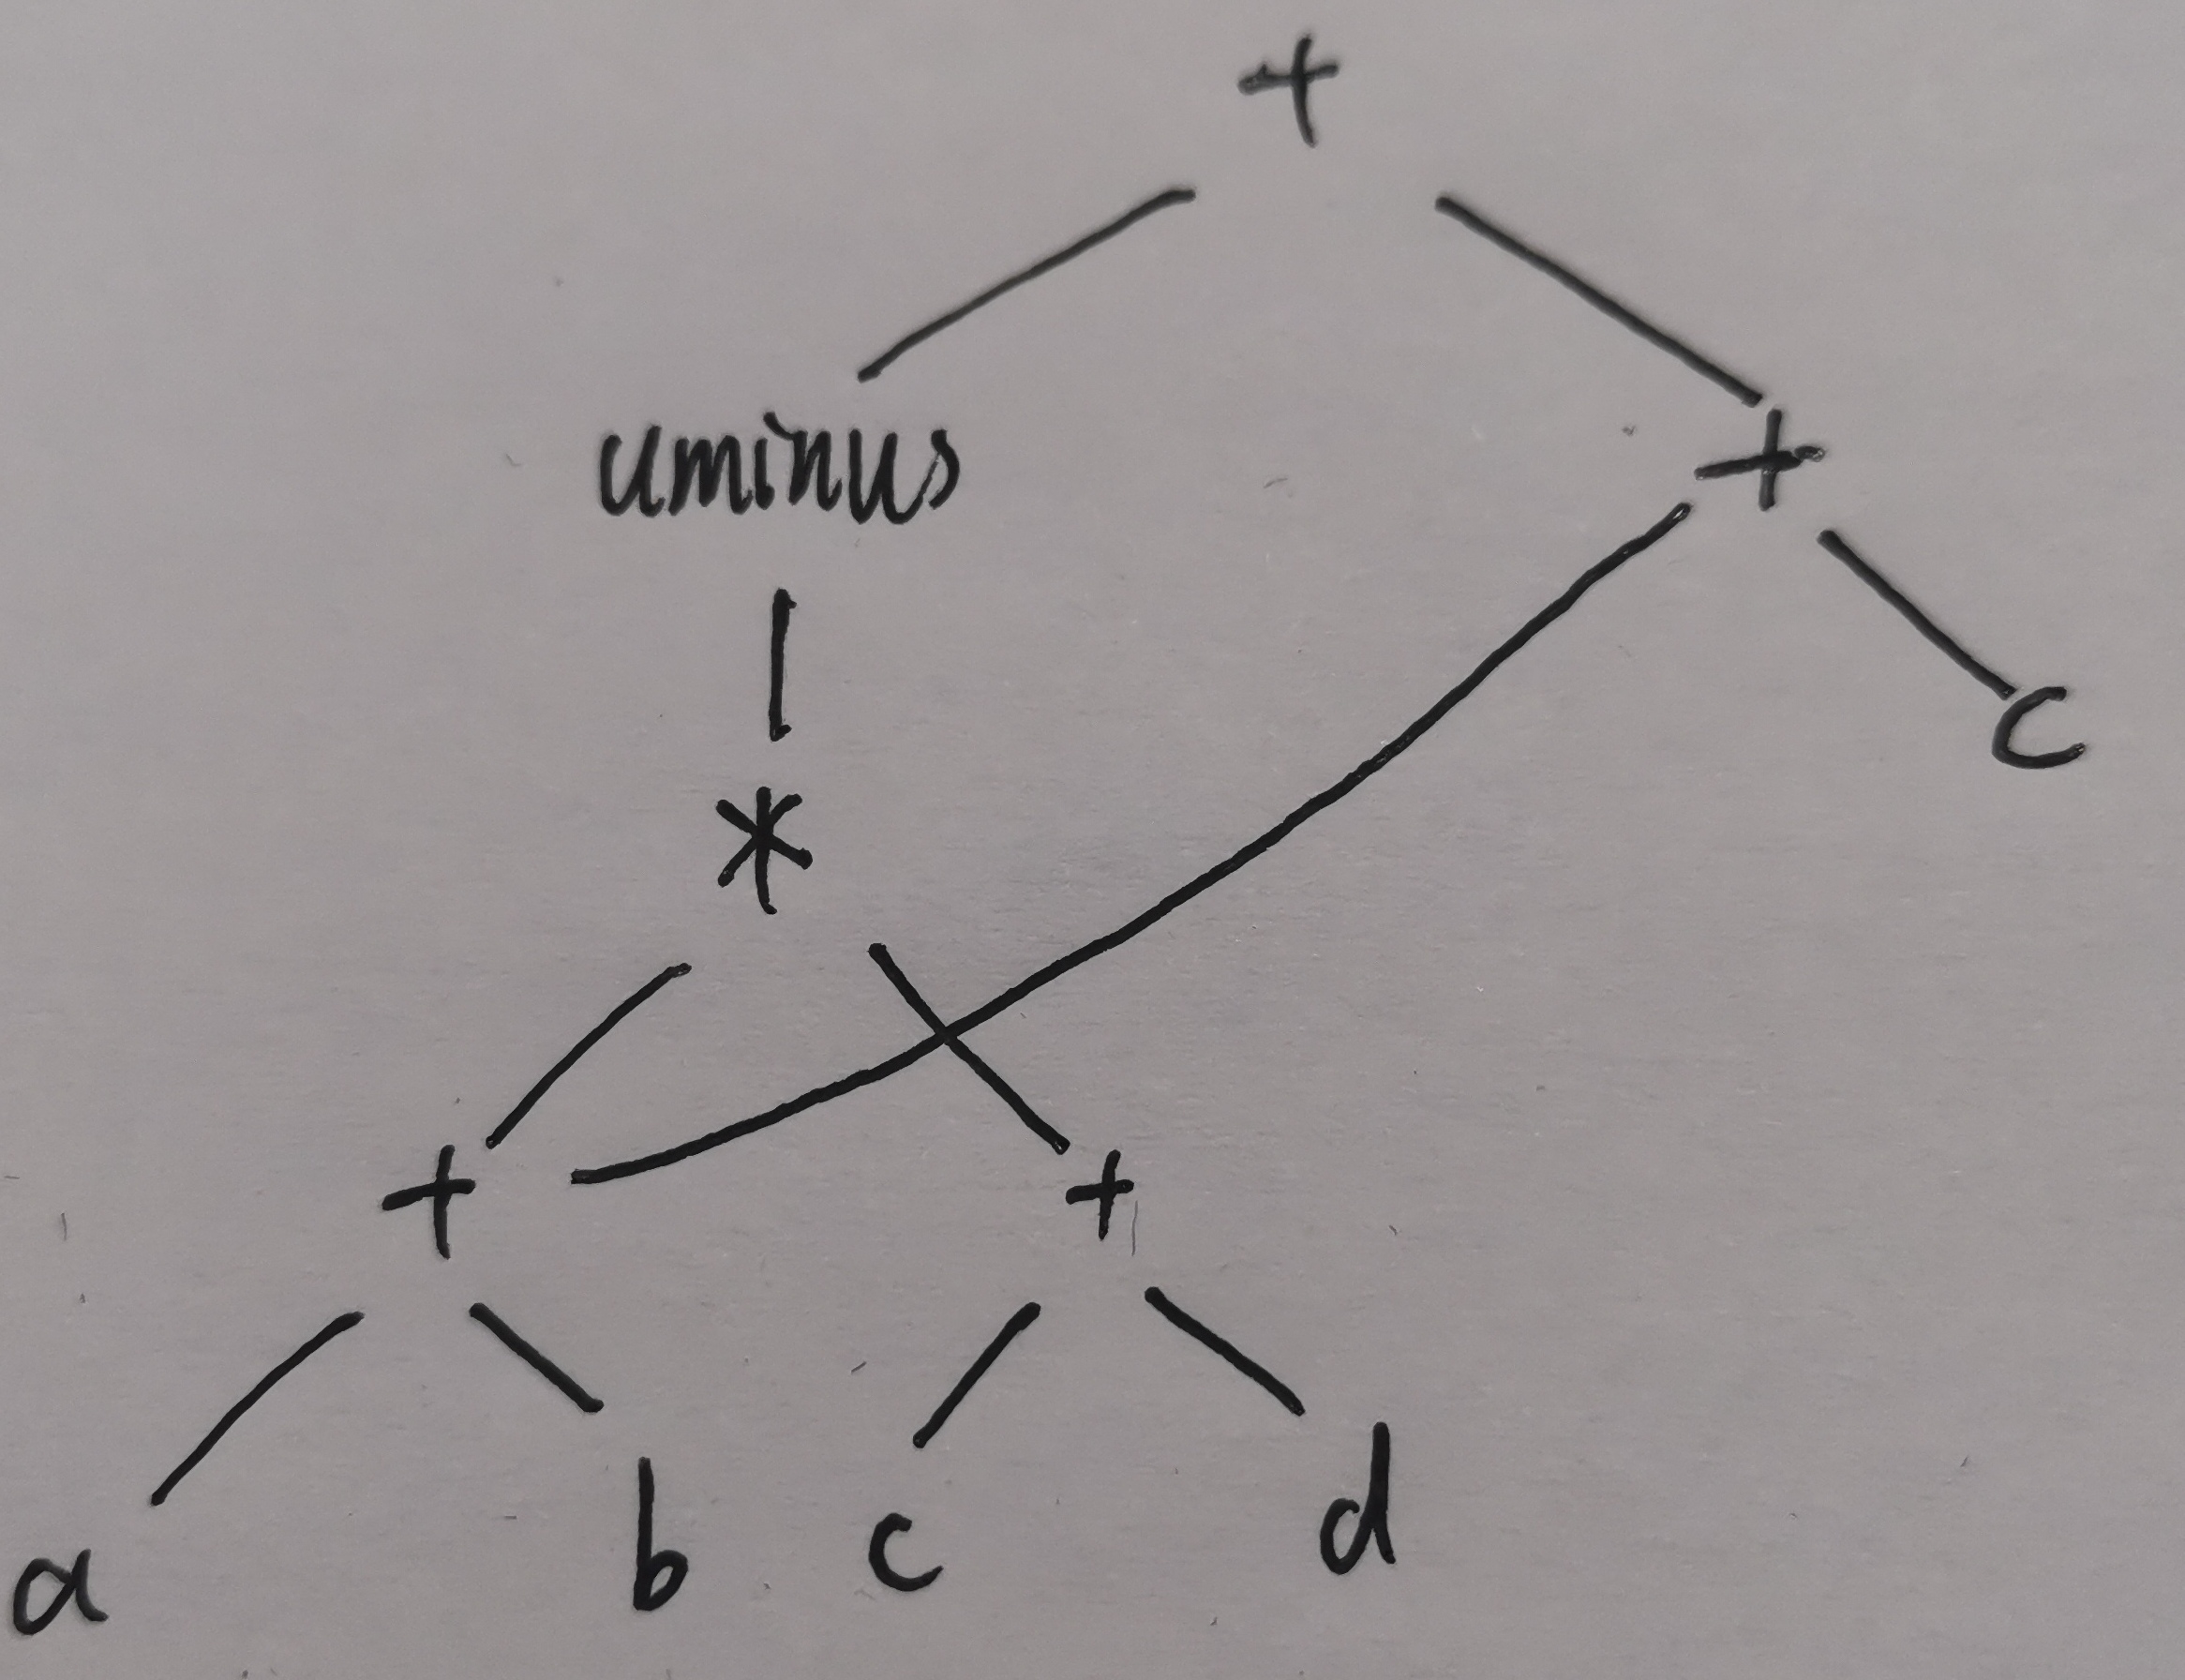 +
uminus +
*
c
+ +
a b c d